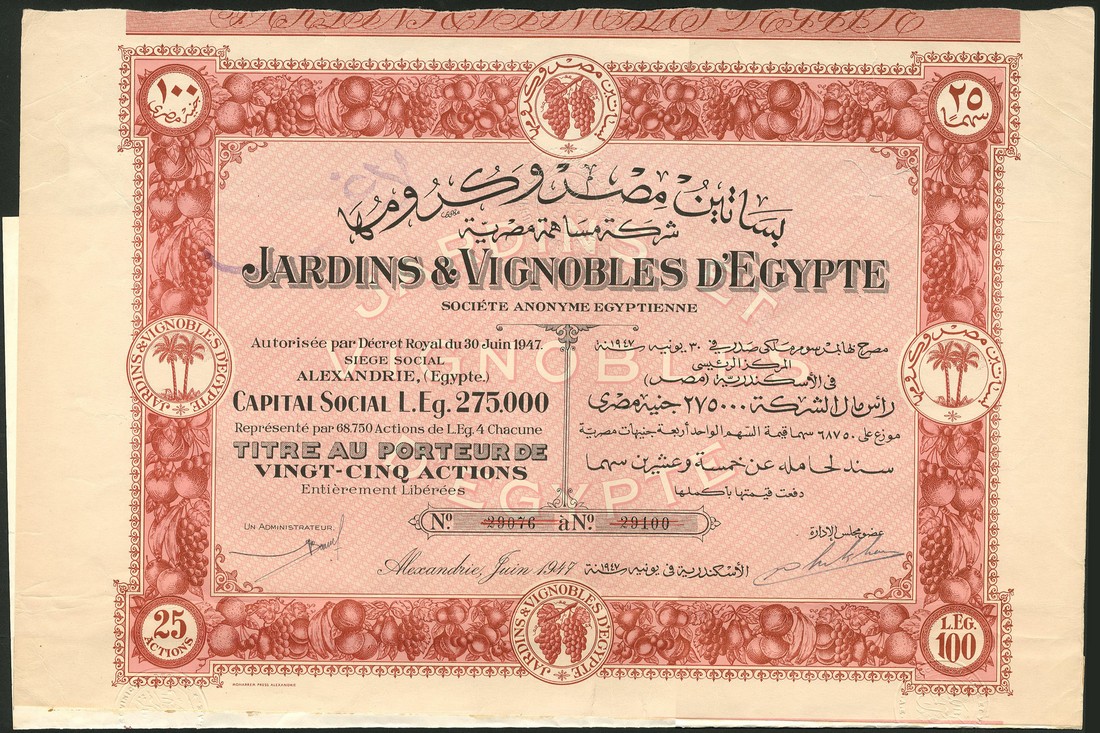 JARDINS & VIGNOBLES D'EGYPTE
١٠٠
جنيه مصرى
بساتين مصر وكرومها
٢٥
سهما
بساتين مصر وكرومها
شركة مساهمة مصرية
JARDINS & VIGNOBLES D'EGYPTE
SOCIÉTÉ ANONYME EGYPTIENNE
JARDINS ET
VIGNOBLES
D'EGYPTE
Autorisée par Décret Royal du 30 Juin 1947.
SIEGE SOCIAL
ALEXANDRIE, (Egypte.)
CAPITAL SOCIAL L.Eg. 275.000
Représenté par 68.750 Actions de L.Eg. 4 Chacune
TITRE AU PORTEUR DE
VINGT-CINQ ACTIONS
Entièrement Libérées
مصرح لها بمرسوم ملكى صدر فى ٣٠ يونيه سنة ١٩٤٧
المركز الرئيسى
فى الأسكندرية (مصر)
رأس مال الشركة ٢٧٥٠٠٠ جنيه مصرى
موزع على ٦٨٧٥٠ سهما قيمة السهم الواحد أربعة جنيهات مصرية
سند لحامله عن خمسة وعشرين سهما
دفعت قيمتها بأكملها
JARDINS & VIGNOBLES D'EGYPTE
بساتين مصر وكرومها
Nº. 29076 à Nº. 29100
UN ADMINISTRATEUR.
عضو مجلس الإدارة
Alexandrie, Juin 1947
الأسكندرية فى يونيه سنة ١٩٤٧
25
ACTIONS
JARDINS & VIGNOBLES D'EGYPTE
L.EG.
100
MOHARREM PRESS ALEXANDRIE